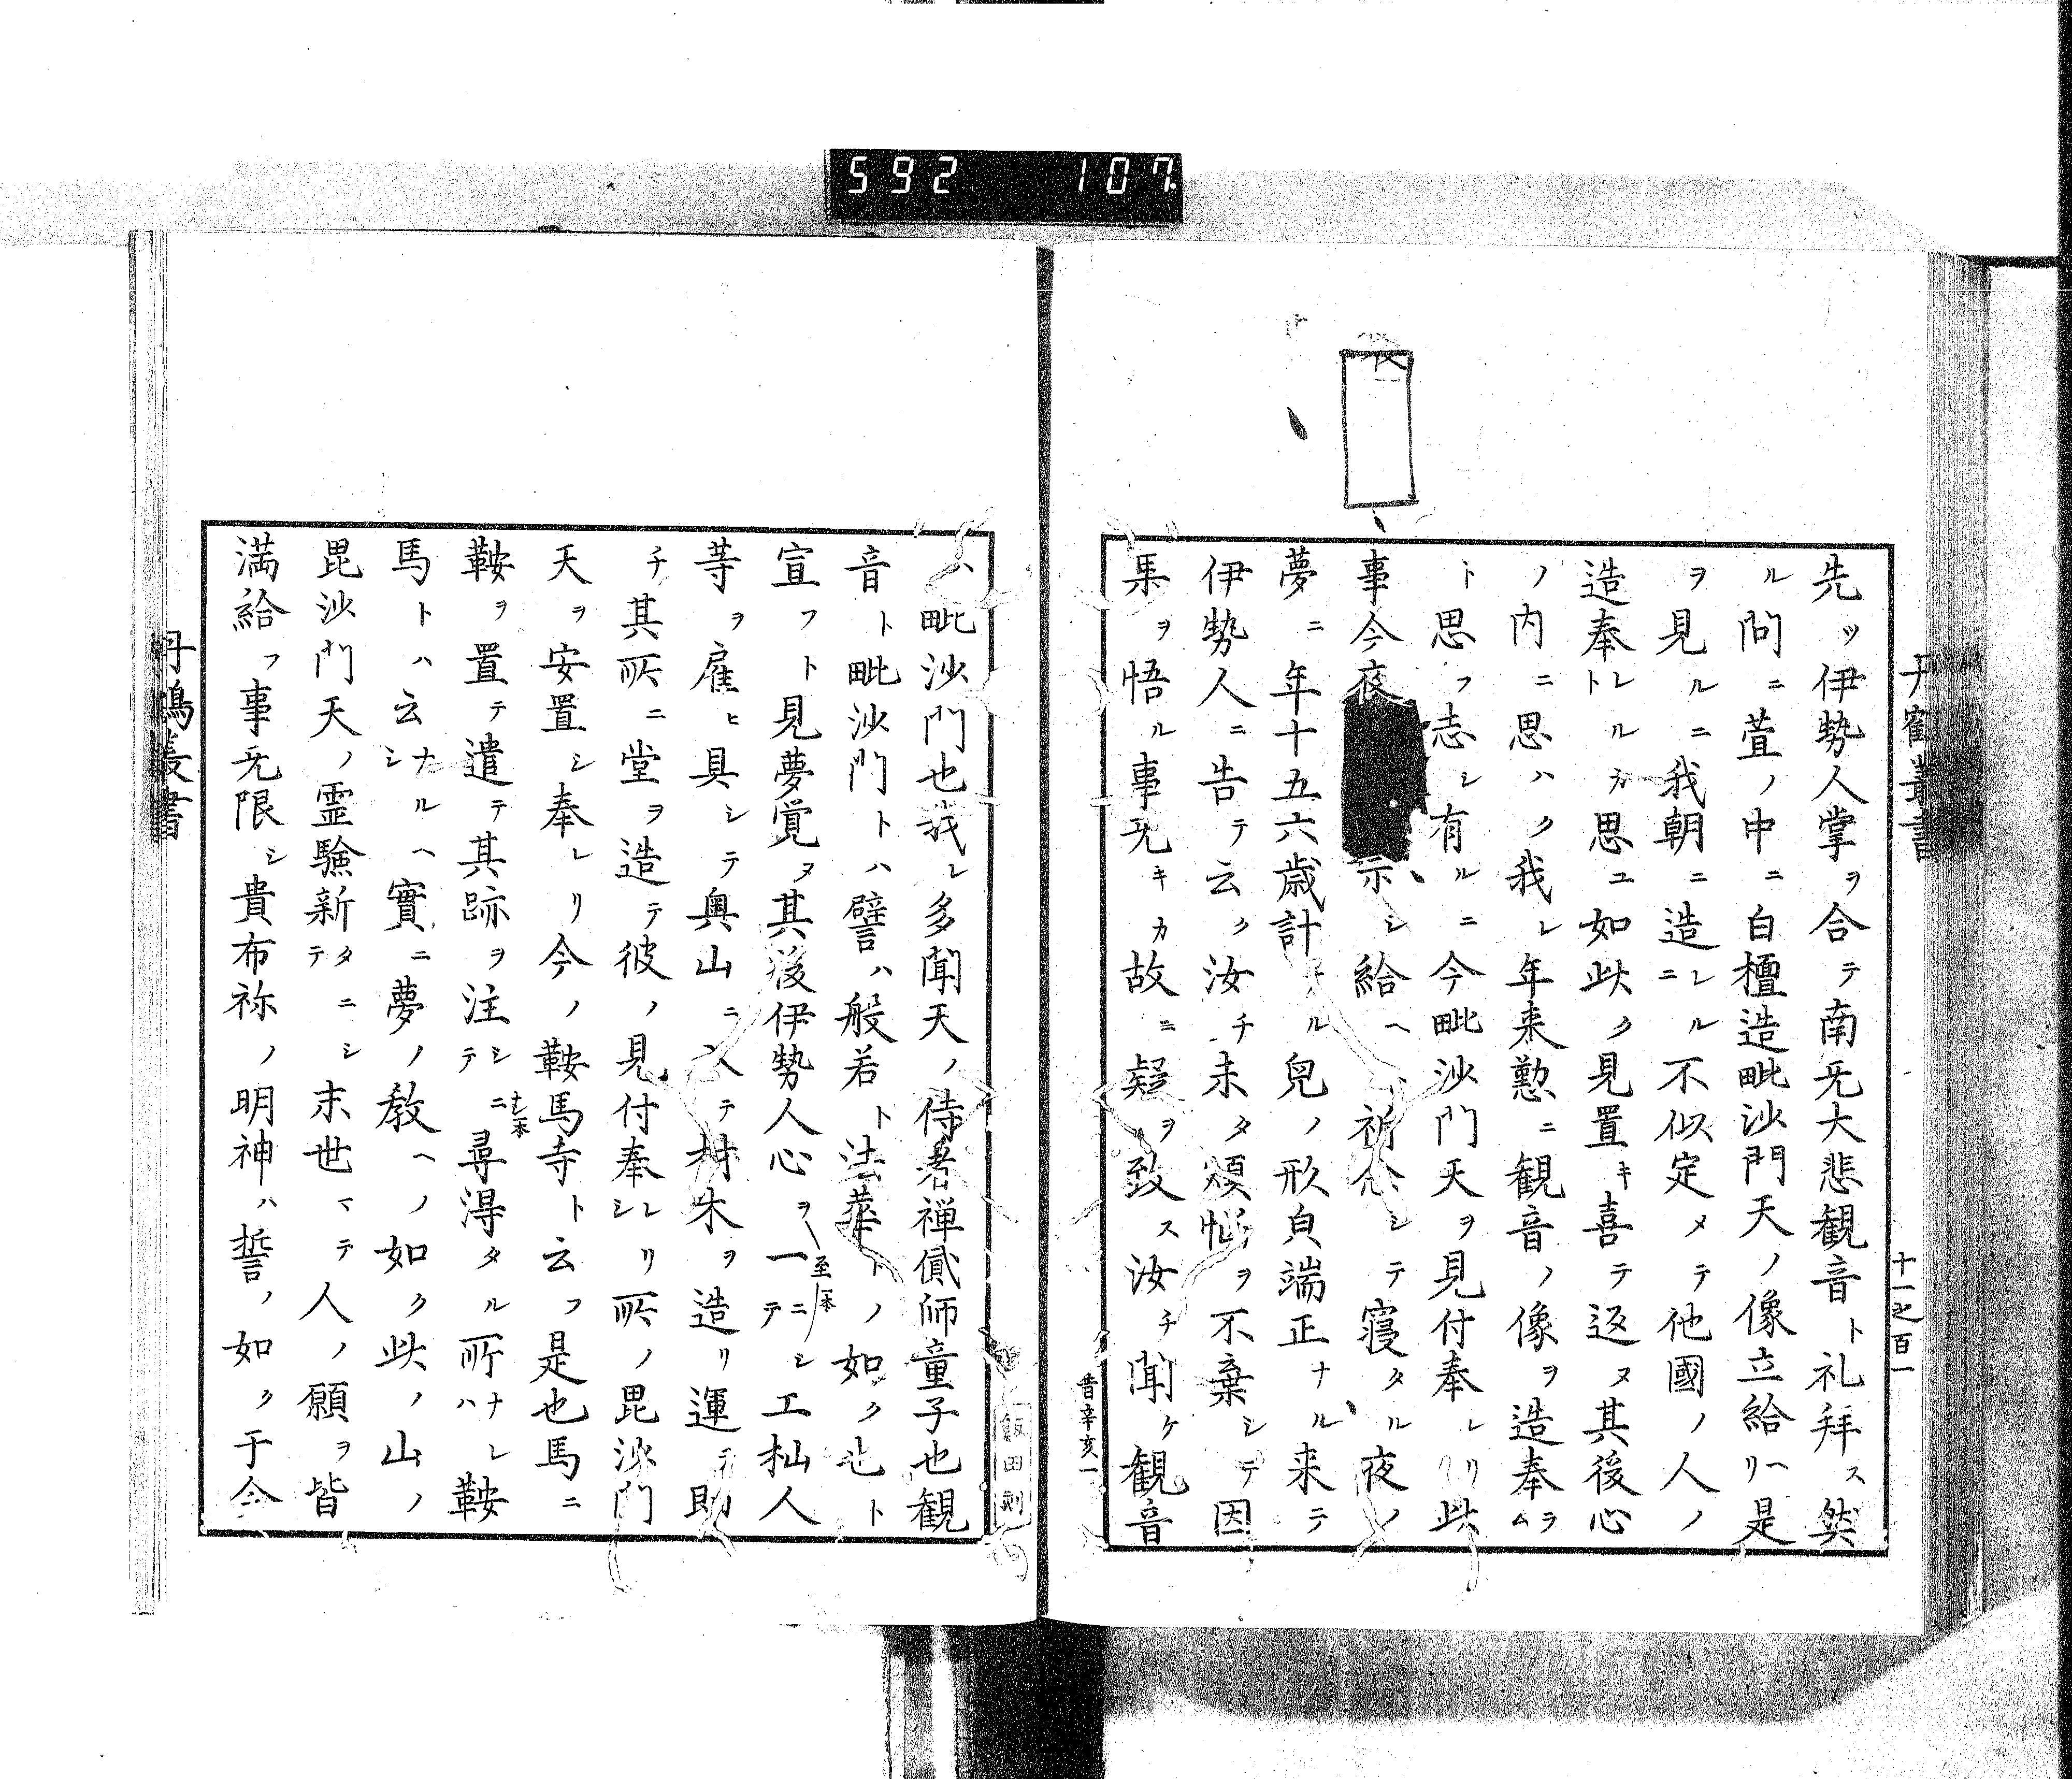 592 107
丹鶴叢書
十一之百一
先ッ伊勢人掌ヲ合テ南无大悲観音ト礼拜ス然
ル間ニ萱ノ中ニ白檀造毗沙門天ノ像立給ヘリ是
ヲ見ルニ我朝ニ造レルニ不似定メテ他國ノ人ノ
造奉レルトカ思ユ如此ク見置キ喜テ返ヌ其後心
ノ内ニ思ハク我レ年来懃ニ観音ノ像ヲ造奉ラム
ト思フ志シ有ルニ今毗沙門天ヲ見付奉レリ此
事今夜示シ給ヘ祈念シテ寝タル夜ノ
夢ニ年十五六歳計ナル兒ノ形皃端正ナル来テ
伊勢人ニ告テ云ク汝チ未タ煩惱ヲ不棄シテ因
果ヲ悟ル事无キカ故ニ疑ヲ致ス汝チ聞ケ観音
昔辛亥一
ハ毗沙門也我レ多聞天ノ侍者禅貳師童子也観
音ト毗沙門トハ譬ハ般若ト法華トノ如ク也ト
宣フト見夢覚ヌ其後伊勢人心ヲ至一本一ニシテ工杣人
等ヲ雇ヒ具シテ奥山ニ入テ材木ヲ造リ運テ助
チ其所ニ堂ヲ造テ彼ノ見付奉レリシ所ノ毘沙門
天ヲ安置シ奉レリ今ノ鞍馬寺ト云フ是也馬ニ
鞍ヲ置テ遣テ其跡ヲ注シテニナシ一本尋得タル所ナレハ鞍
馬トハ云ナルヘシ實ニ夢ノ教ヘノ如ク此ノ山ノ
毘沙門天ノ霊驗新タニシテ末世マテ人ノ願ヲ皆
満給フ事无限シ貴布祢ノ明神ハ誓ノ如ク于今
丹鶴叢書